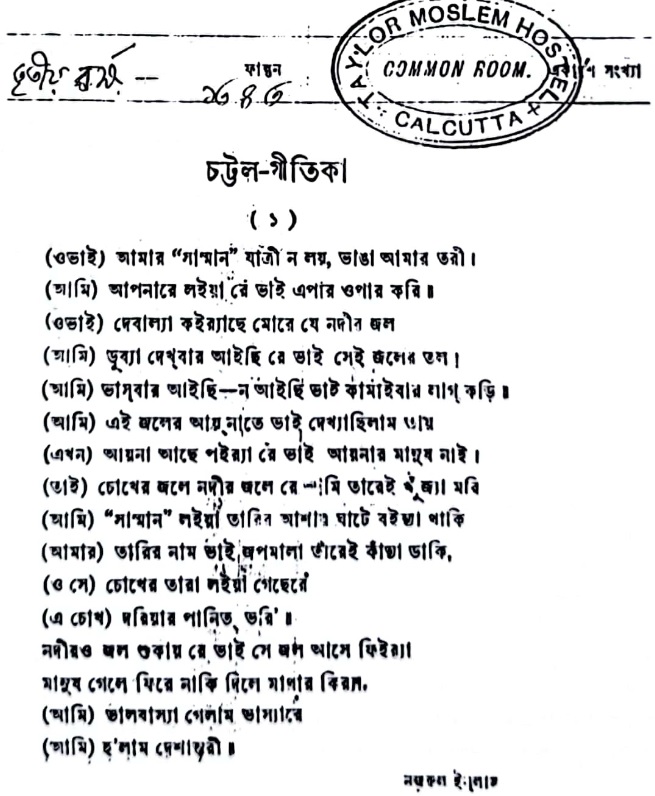 তৃতীয় বর্ষ —
ফাল্গুন
১৩৪৩
TAYLOR MOSLEM HOSTEL
COMMON ROOM.
CALCUTTA
সংখ্যা
চট্টল-গীতিকা
( ১ )
(ওভাই) আমার “সাম্মান” যাত্রী ন লয়, ভাঙা আমার তরী।
(আমি) আপনারে লইয়া রে ভাই এপার ওপার করি॥
(ওভাই) দেবাল্যা কইর‍্যাছে মোরে যে নদীর জল
(আমি) ডুব্যা দেখ্‌বার আইছি রে ভাই সেই জলের তল।
(আমি) ভাস্‌বার আইছি—ন আইছি ভাই কামাইবার লাগ্ কড়ি॥
(আমি) এই জলের আয়্‌নাতে ভাই দেখ্যাছিলাম তায়
(এখন) আয়না আছে পইর‍্যা রে ভাই আয়নার মানুষ নাই।
(তাই) চোখের জলে নদীর জলে রে আমি তারেই খুঁজ্যা মরি
(আমি) “সাম্মান” লইয়া তারির আশায় ঘাটে বইস্যা থাকি
(আমার) তারির নাম ভাই জপমালা তারেই কাঁন্দা ডাকি,
(ও সে) চোখের তারা লইয়া গেছেরে
(এ চোখ) দরিয়ার পানিত্ ভরি’॥
নদীরও জল শুকায় রে ভাই সে জল আসে ফিইর‍্যা
মানুষ গেলে ফিরে নাকি দিলে মাথার কিরা,
(আমি) ভালবাস্যা গেলাম ভাস্যারে
(আমি) হ’লাম দেশান্তরী॥
নজরুল ইসলাম